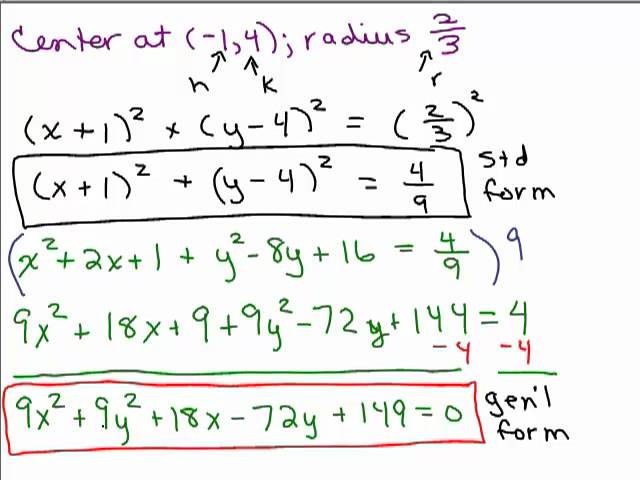 Center at (-1,4); radius 2/3
h k r
(x+1)² + (y-4)² = (2/3)²
(x+1)² + (y-4)² = 4/9 std form
(x²+2x+1 + y²-8y+16 = 4/9) 9
9x² + 18x + 9 + 9y² - 72y + 144 = 4
-4 -4
9x² + 9y² + 18x - 72y + 149 = 0 gen'l form